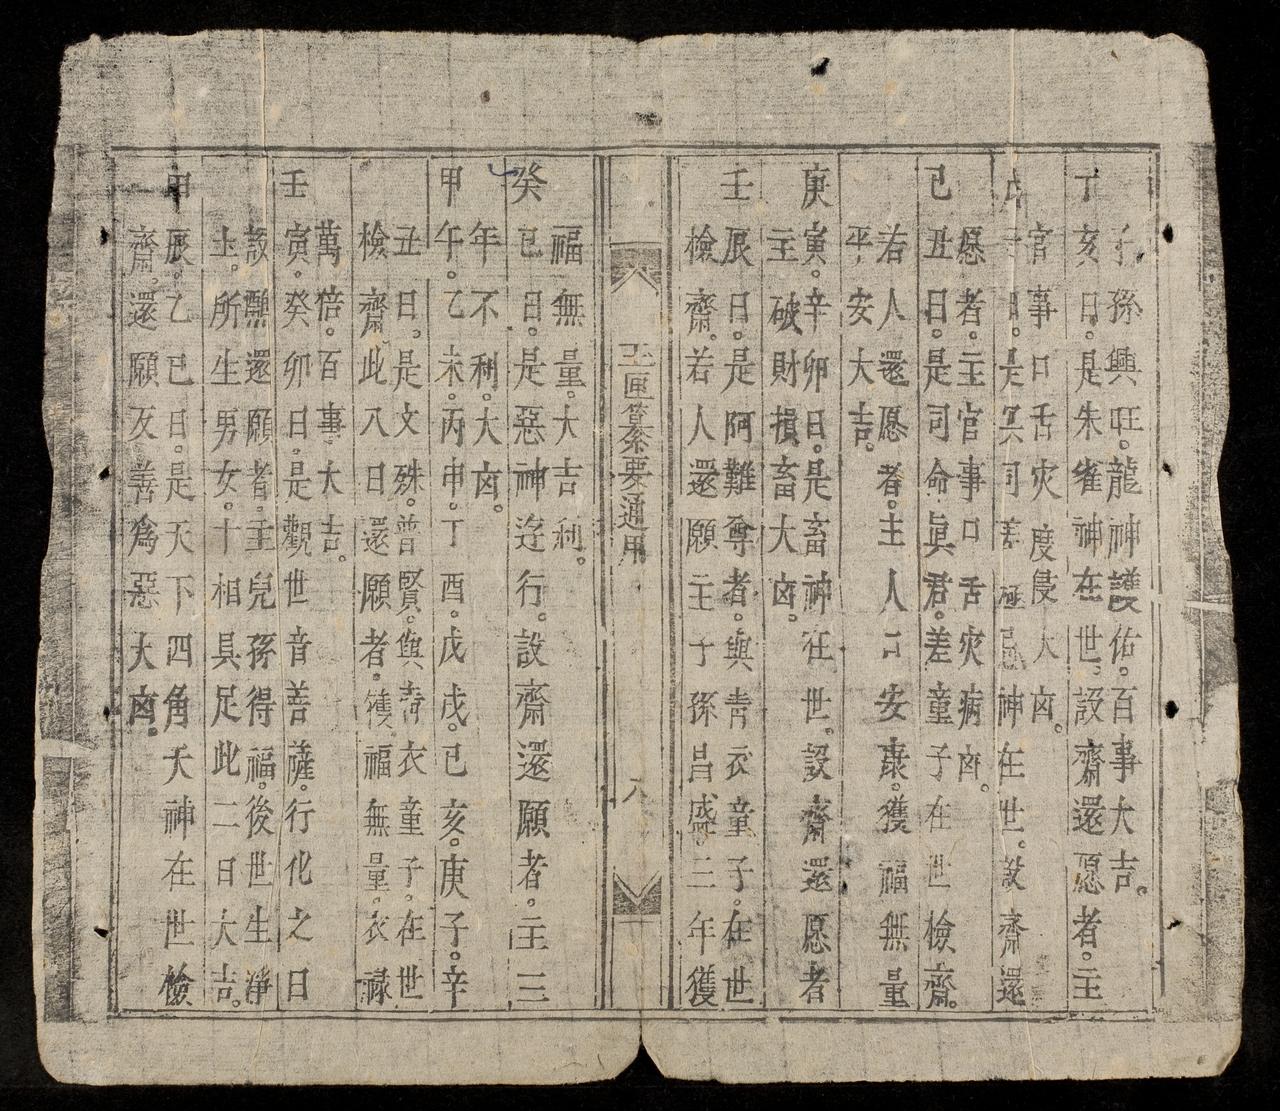 子孫興旺。龍神護佑。百事大吉。
丁亥日。是朱雀神在世。設齋還愿者。主
官事口舌灾 度侵大凶。
戊子日。是冥司差 極忌神在世。設齋還
愿者。主官事口舌灾病凶。
己丑日。是司命眞君。差童子在世檢齋。
若人還愿者。主人口安康。獲福無量
平安大吉。
庚寅。辛卯日。是畜神在世。設齋還愿者
主破財損畜大凶。
壬辰日。是阿難尊者。與青衣童子。在世
檢齋。若人還願主子孫昌盛。三年獲
玉匣纂要通用
六
福無量。大吉利。
癸巳日。是惡神逆行。設齋還願者。主三
年不利。大凶。
甲午。乙未。丙申。丁酉。戊戌。己亥。庚子。辛
丑日。是文殊。普賢。與青衣童子。在世
檢齋。此八日還願者。獲福無量。衣祿
萬倍。百事大吉。
壬寅。癸卯日。是觀世音善薩。行化之日
設願還願者。主兒孫得福。後世生淨
土。所生男女。十相具足此二日大吉。
甲辰。乙巳日。是天下四角大神在世檢
齋。還願反善爲惡大凶。